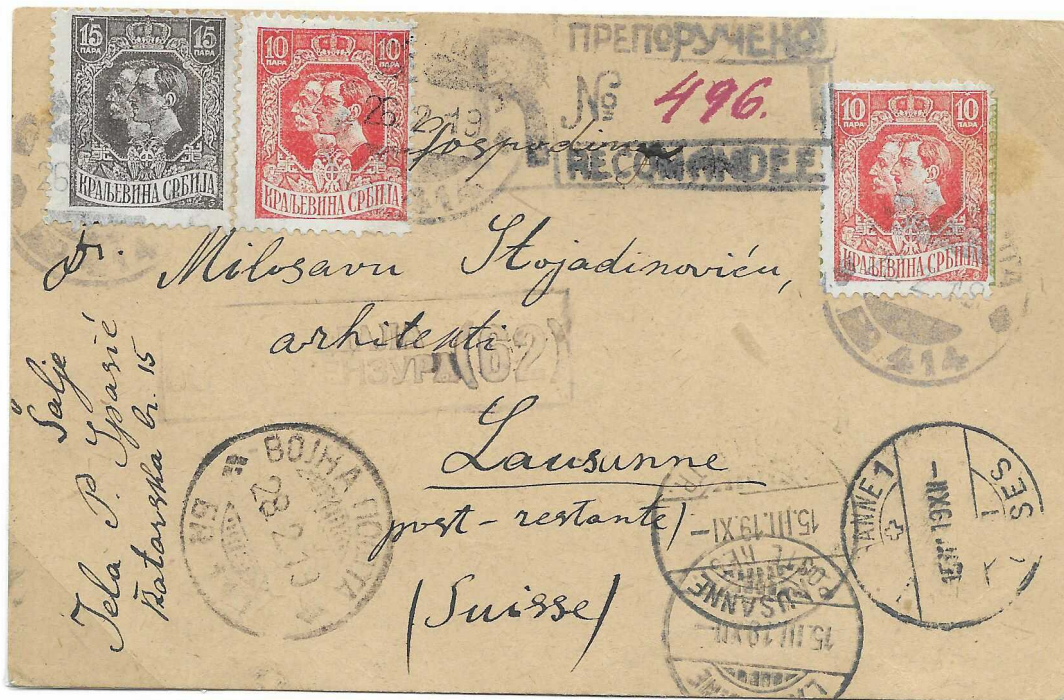 15 15
ПАРА ПАРА
КРАЉЕВИНА СРБИЈА
10 10
ПАРА ПАРА
КРАЉЕВИНА СРБИЈА
26.2.19
414
R
ПРЕПОРУЧЕНО
№ 496.
RECOMANDEE
10 10
ПАРА ПАРА
КРАЉЕВИНА СРБИЈА
414
414
Gospodinu
Dr. Milosavu Stojadinoviću,
arhitekti
(62)
Lausanne
post-restante)
(Suisse)
Šalje
Jela P. Spasić
br. 15
ВОЈНА ПОШТА
28.2.19
15.III.19.XI-
LAUSANNE
15.III.19.XII
LAUSANNE 1